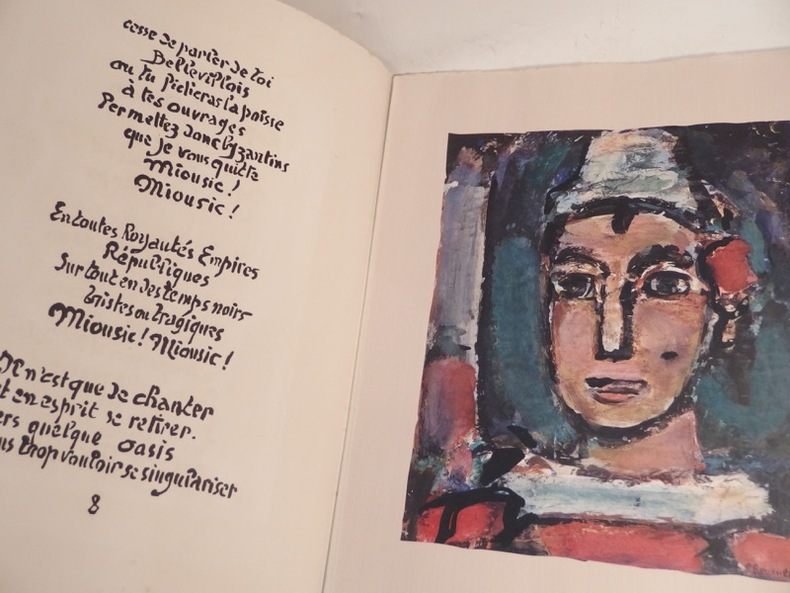 cesse de parler de toi
Bellevillois
ou tu picliras la poisse
à tes ouvrages
Permettez donc byzantins
que je vous quitte
Miousic !
Miousic !
En toutes Royautés Empires
Républiques
Surtout en des temps noirs
tristes ou tragiques
Miousic ! Miousic !
n'est que de chanter
et en esprit se retirer.
quelque oasis
trop vouloir se singulariser
8